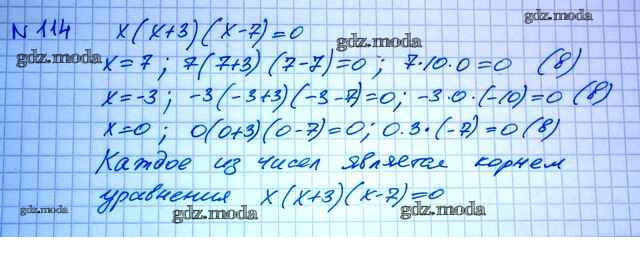 № 114 x(x+3)(x-7)=0
gdz.moda gdz.moda
x=7; 7(7+3)(7-7)=0; 7·10·0=0 (в)
x=-3; -3(-3+3)(-3-7)=0; -3·0·(-10)=0 (в)
gdz.moda gdz.moda
x=0; 0(0+3)(0-7)=0; 0·3·(-7)=0 (в)
Каждое из чисел является корнем
gdz.moda
уравнения x(x+3)(x-7)=0
gdz.moda gdz.moda gdz.moda